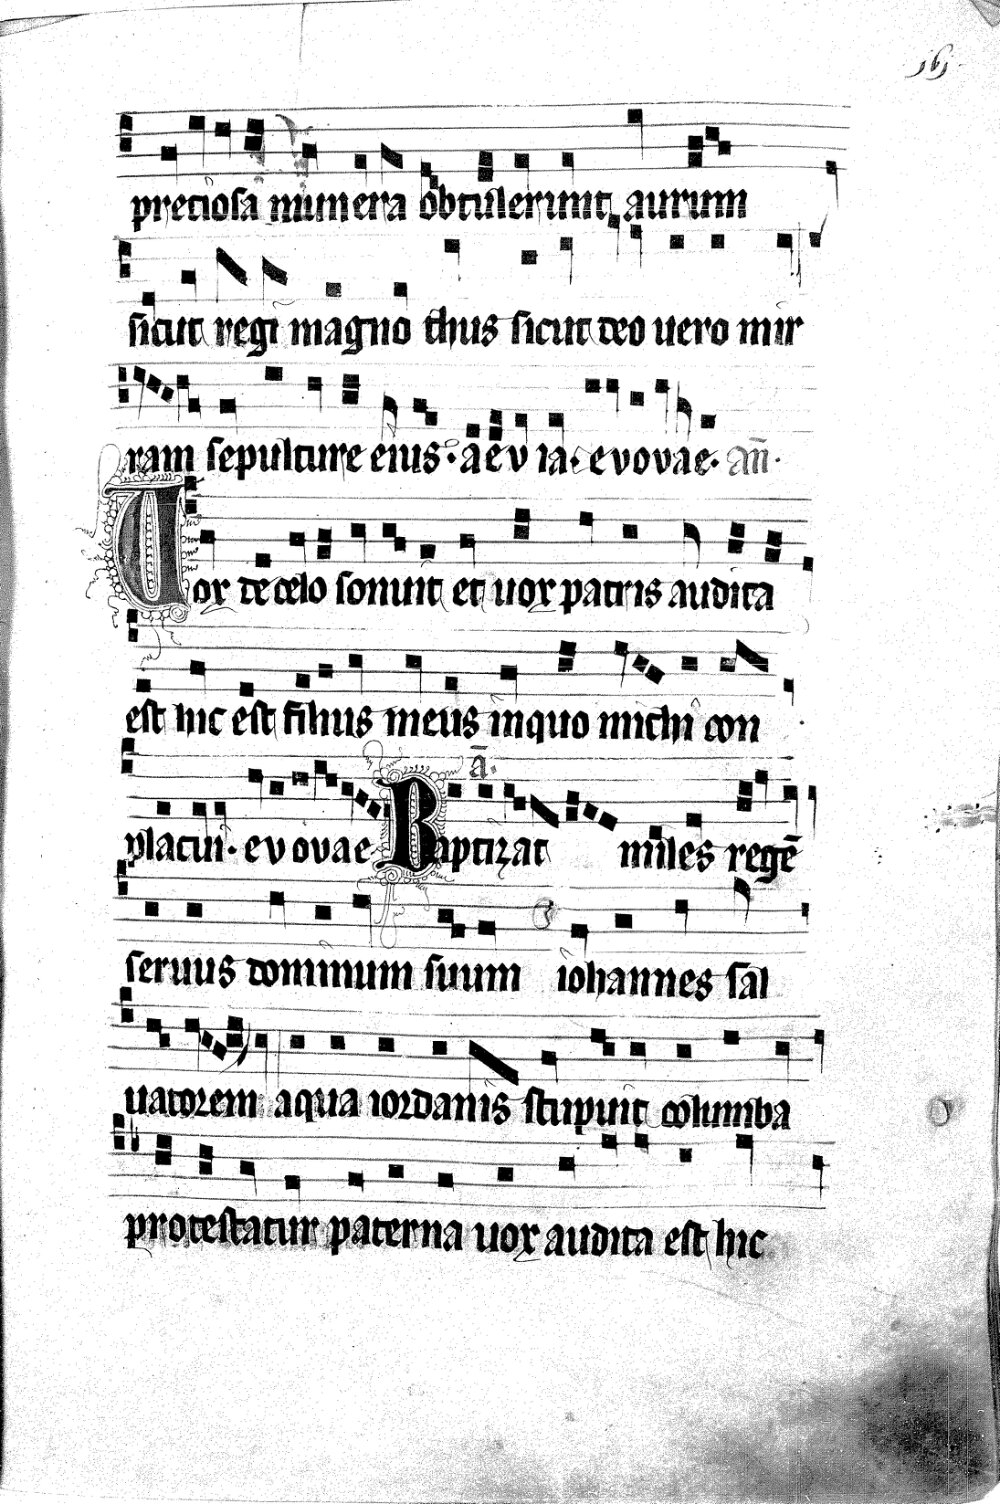 161
preciosa munera obtulerunt aurum
sicut regi magno thus sicut deo uero mir
ram sepulture eius · aevia · evovae · añ ·
Vox de celo sonuit et uox patris audita
est hic est filius meus inquo michi con
ā.
placui · evovae Baptizat miles regē
seruus dominum suum iohannes sal
uatorem aqua iordanis stupuit columba
protestatur paterna uox audita est hic